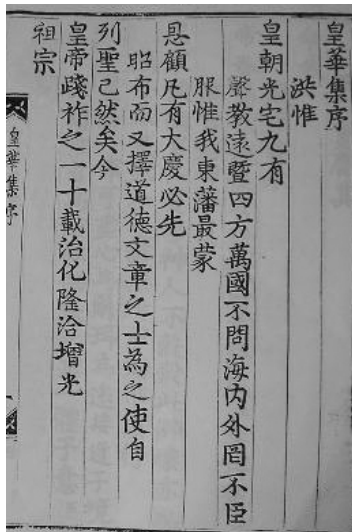 皇華集序
洪惟
皇朝光宅九有
聲教遠曁四方萬國不問海內外罔不臣
服惟我東藩最蒙
恩顧凡有大慶必先
昭布而又擇道德文章之士為之使自
列聖已然矣今
皇帝踐祚之一十載治化隆洽增光
祖宗
皇華集序